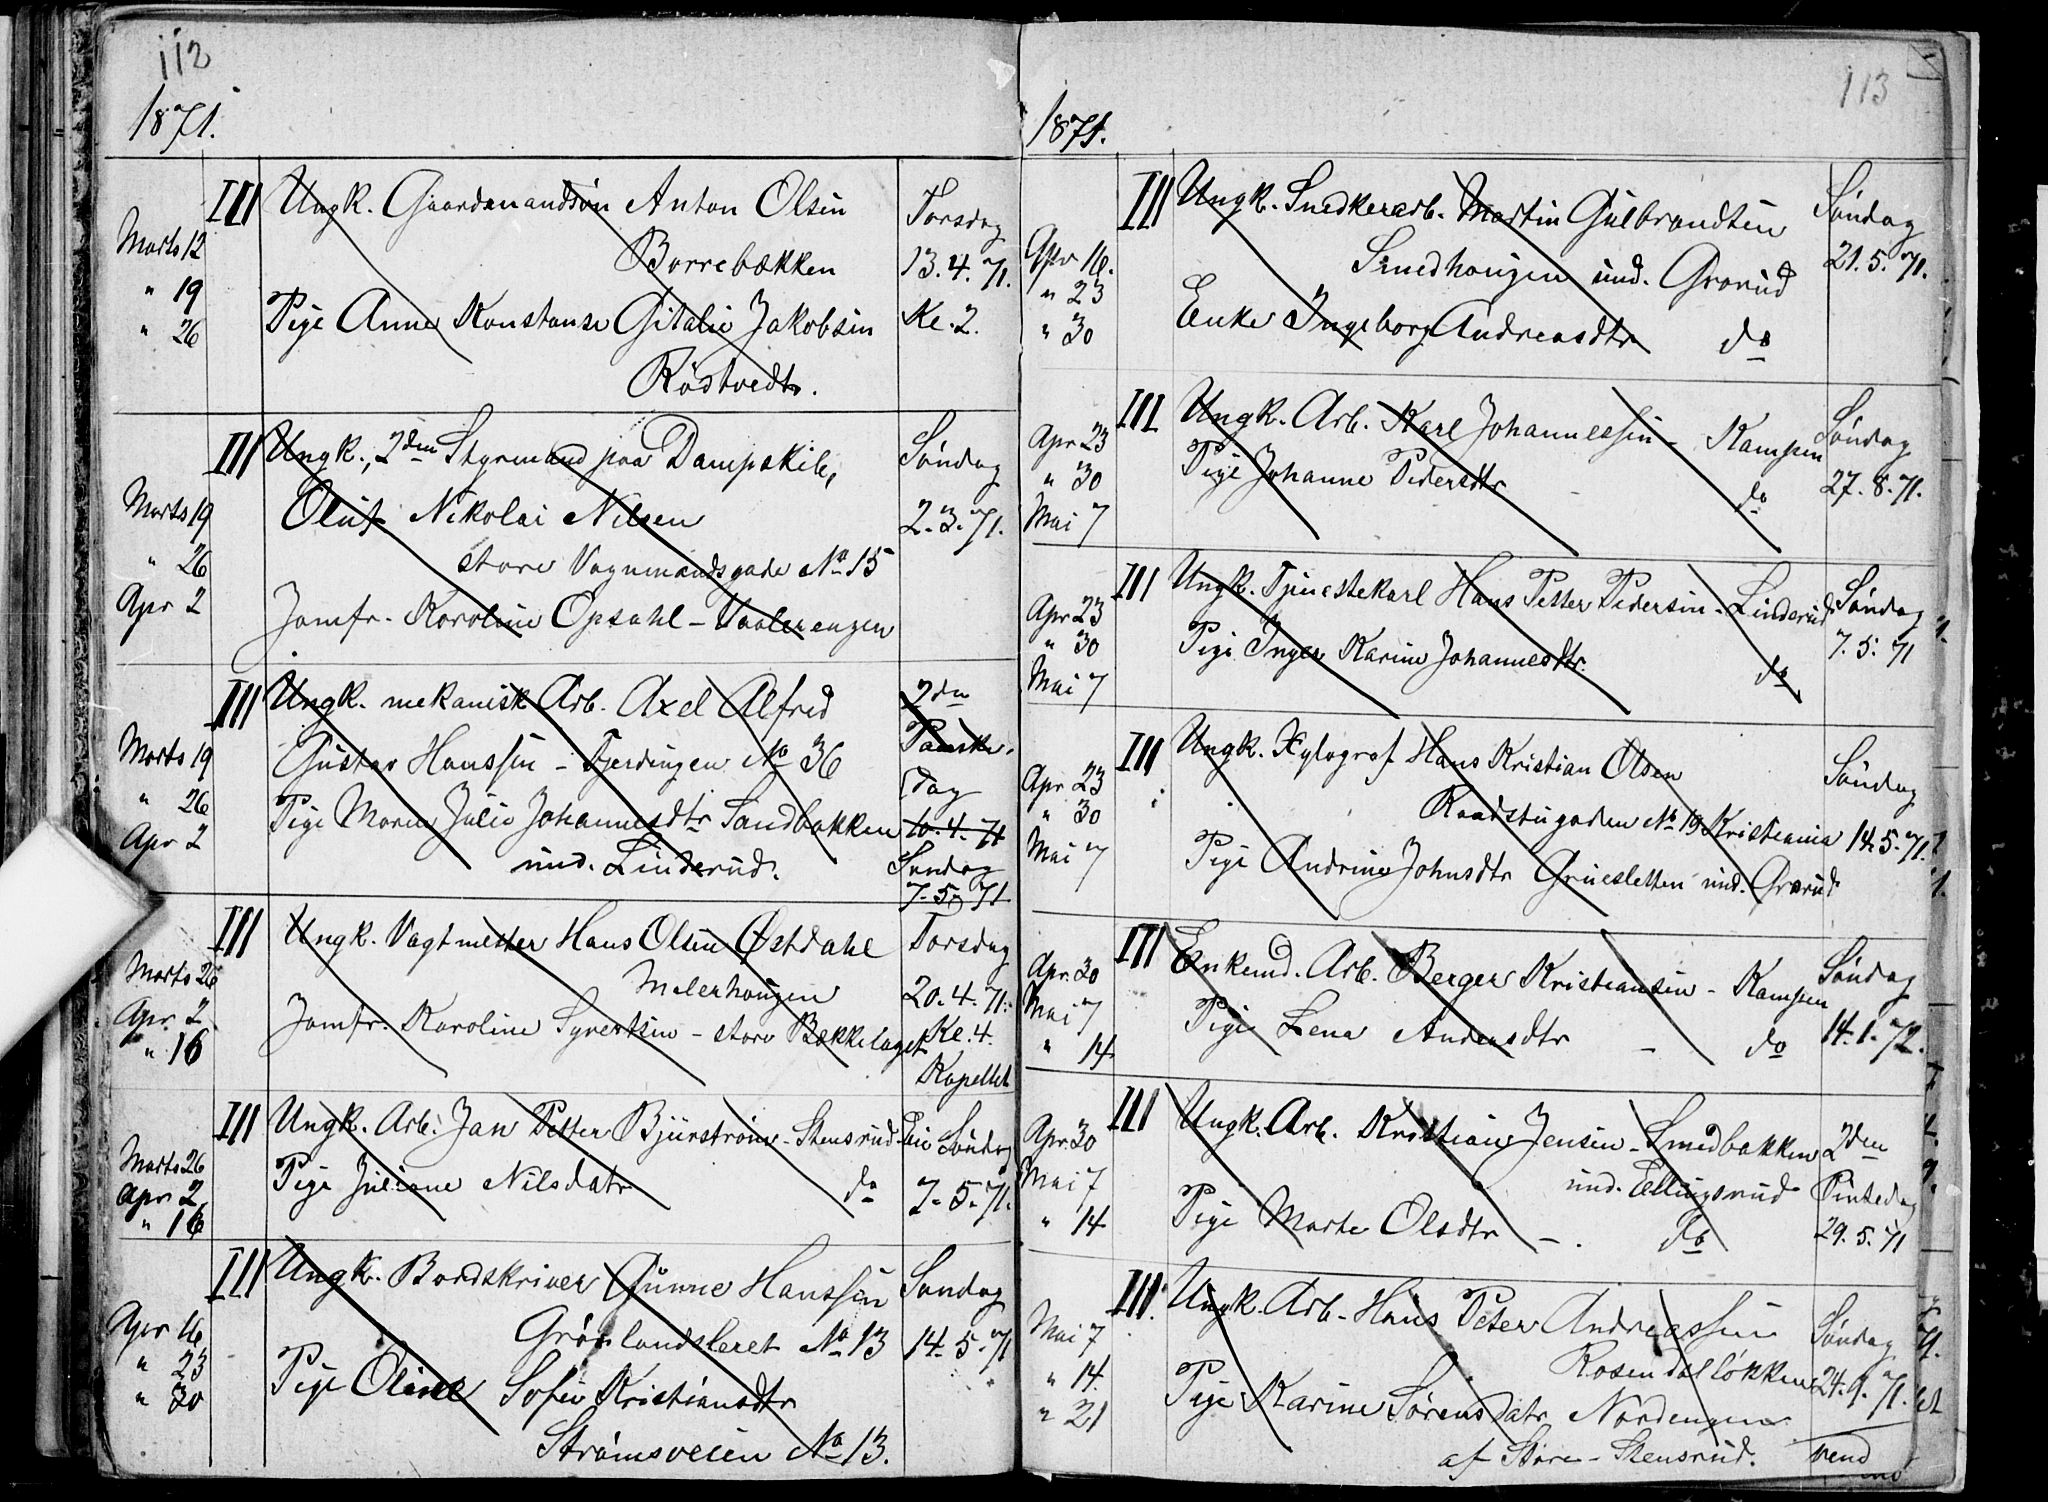 112
1871.
III Ungk. Gaardmandsøn Anton Olsen Torsdag
Marts 12 Borrebækken 13.4.71.
" 19 Pige Anne Konstanse Gitalie Jakobsen Kl. 2.
" 26 Rödtvedt.
III Ungk., 2den Styrmand paa Dampskib, Søndag
Marts 19 Oluf Nikolai Nilsen 2.3.71.
" 26 store Vognmandsgade No 15
Apr 2 Jomfr. Karoline Opsahl - Vaalerengen
III Ungk. mekanisk Arb. Axel Alfred 2den
Marts 19 Gustav Hanssen - Fjerdingen No 36 Paaske-
" 26 Pige Maren Julie Johannesdtr Sandbakken dag 10.4.71
Apr 2 und. Linderud. Søndag
7.5.71
III Ungk. Vagtmester Hans Olsen Østdahl Torsdag
Marts 26 Melerhougen 20.4.71.
Apr. 2 Jomfr. Karoline Syvertsen - store Bækkelaget Kl. 4.
" 16 Kapellet
III Ungk. Arb. Jan Petter Bjurstrøm - Stensrud Søndag
Marts 26 Pige Juliane Nilsdatr do 7.5.71.
Apr 2
" 16
III Ungk. Bordskriver Gunne Hanssen Søndag
Apr 16 Grønlandsleret No 13 14.5.71
" 23 Pige Oline Sofie Kristiansdtr
" 30 Strømsveien No 13.
113
1871.
III Ungk. Snedkerarb. Martin Gulbrandsen Søndag
Apr 16. Smedhougen und. Grorud 21.5.71.
" 23 Enke Ingeborg Andreasdtr do
" 30
III Ungk. Arb. Karl Johannessen - Kampen Søndag
Apr 23 Pige Johanne Pedersdtr - do 27.8.71.
" 30
Mai 7
III Ungk. Tjenestekarl Hans Petter Pedersen - Linderud Søndag
Apr 23 Pige Inger Karine Johannesdtr. do 7.5.71
" 30
Mai 7
III Ungk. Xylograf Hans Kristian Olsen Søndag
Apr 23 Raadstugaden No 19 Kristiania 14.5.71.
" 30 Pige Andrine Johnsdtr Gruesletten und. Grorud
Mai 7
III Enkemd. Arb. Berger Kristiansen - Kampen Søndag
Apr. 30 Pige Lena Andersdtr - do 14.1.72.
Mai 7
" 14
III Ungk. Arb. Kristian Jensen - Smedbakken 2den
Apr 30 und. Ellingsrud Pintsedag
Mai 7 Pige Marte Olsdtr - do 29.5.71
" 14
III Ungk. Arb. Hans Peter Andreassen Søndag
Mai 7 Rosendalløkken 24.9.71.
" 14 Pige Karine Sørensdatr Nordengen
" 21 af Store-Stensrud. vend